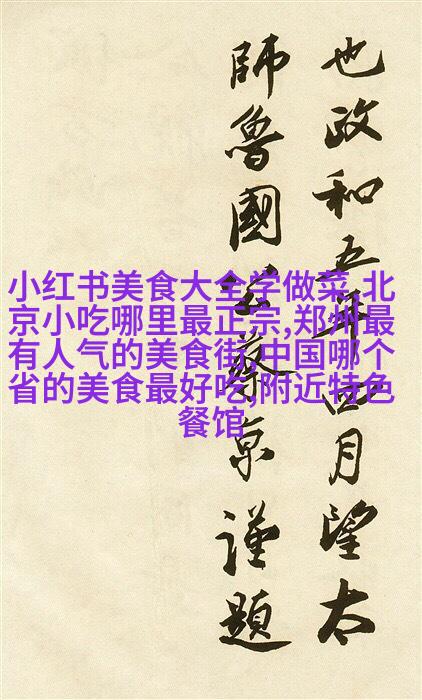 也政和五年四月望太
師魯國公蔡京謹題
小红书美食大全学做菜,北
京小吃哪里最正宗,郑州最
有人气的美食街,中国哪个
省的美食最好吃,附近特色
餐馆